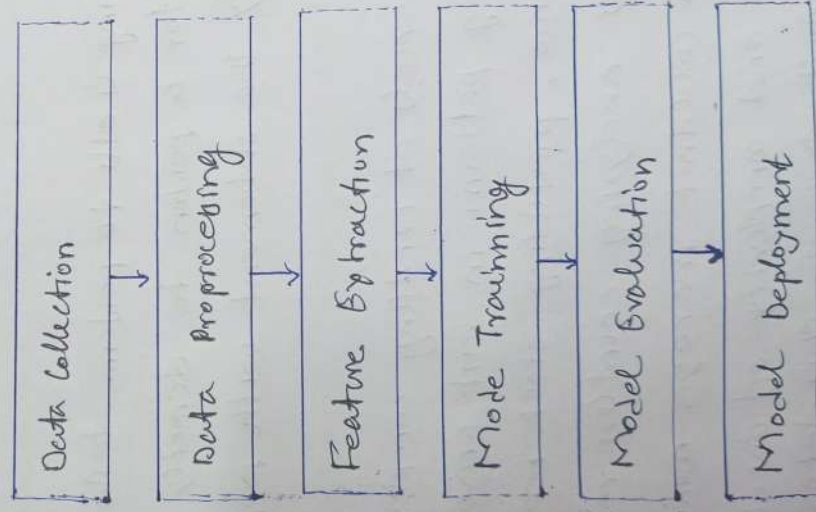 Data Collection
Data Proprocessing
Feature Extraction
Mode Trainning
Model Evaluation
Model Deployment